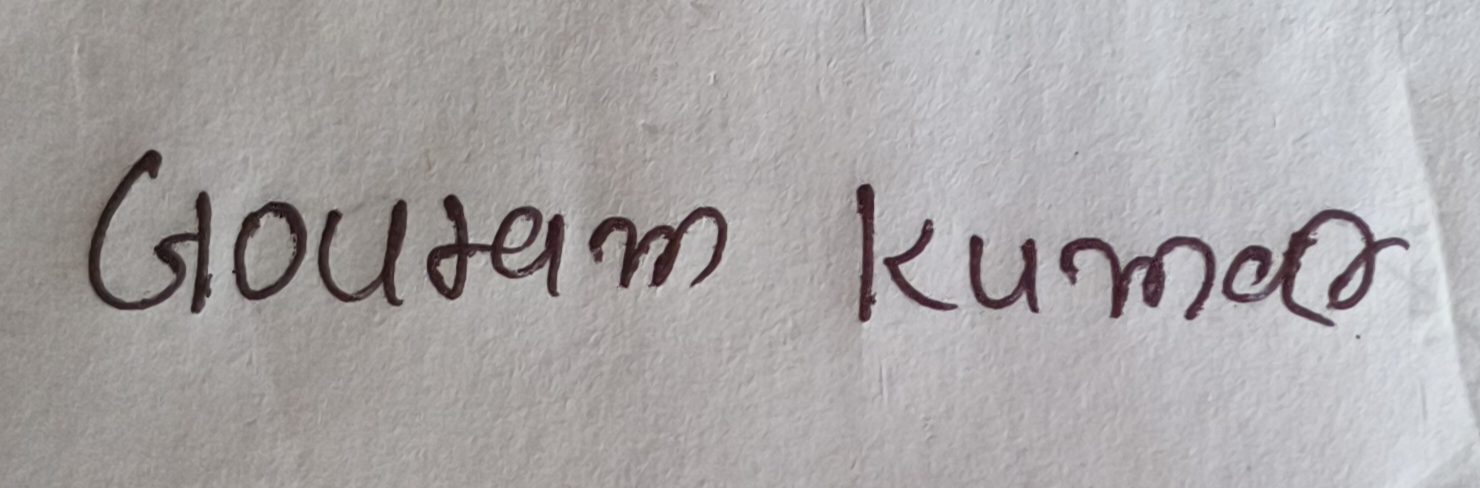 Goutam Kumar